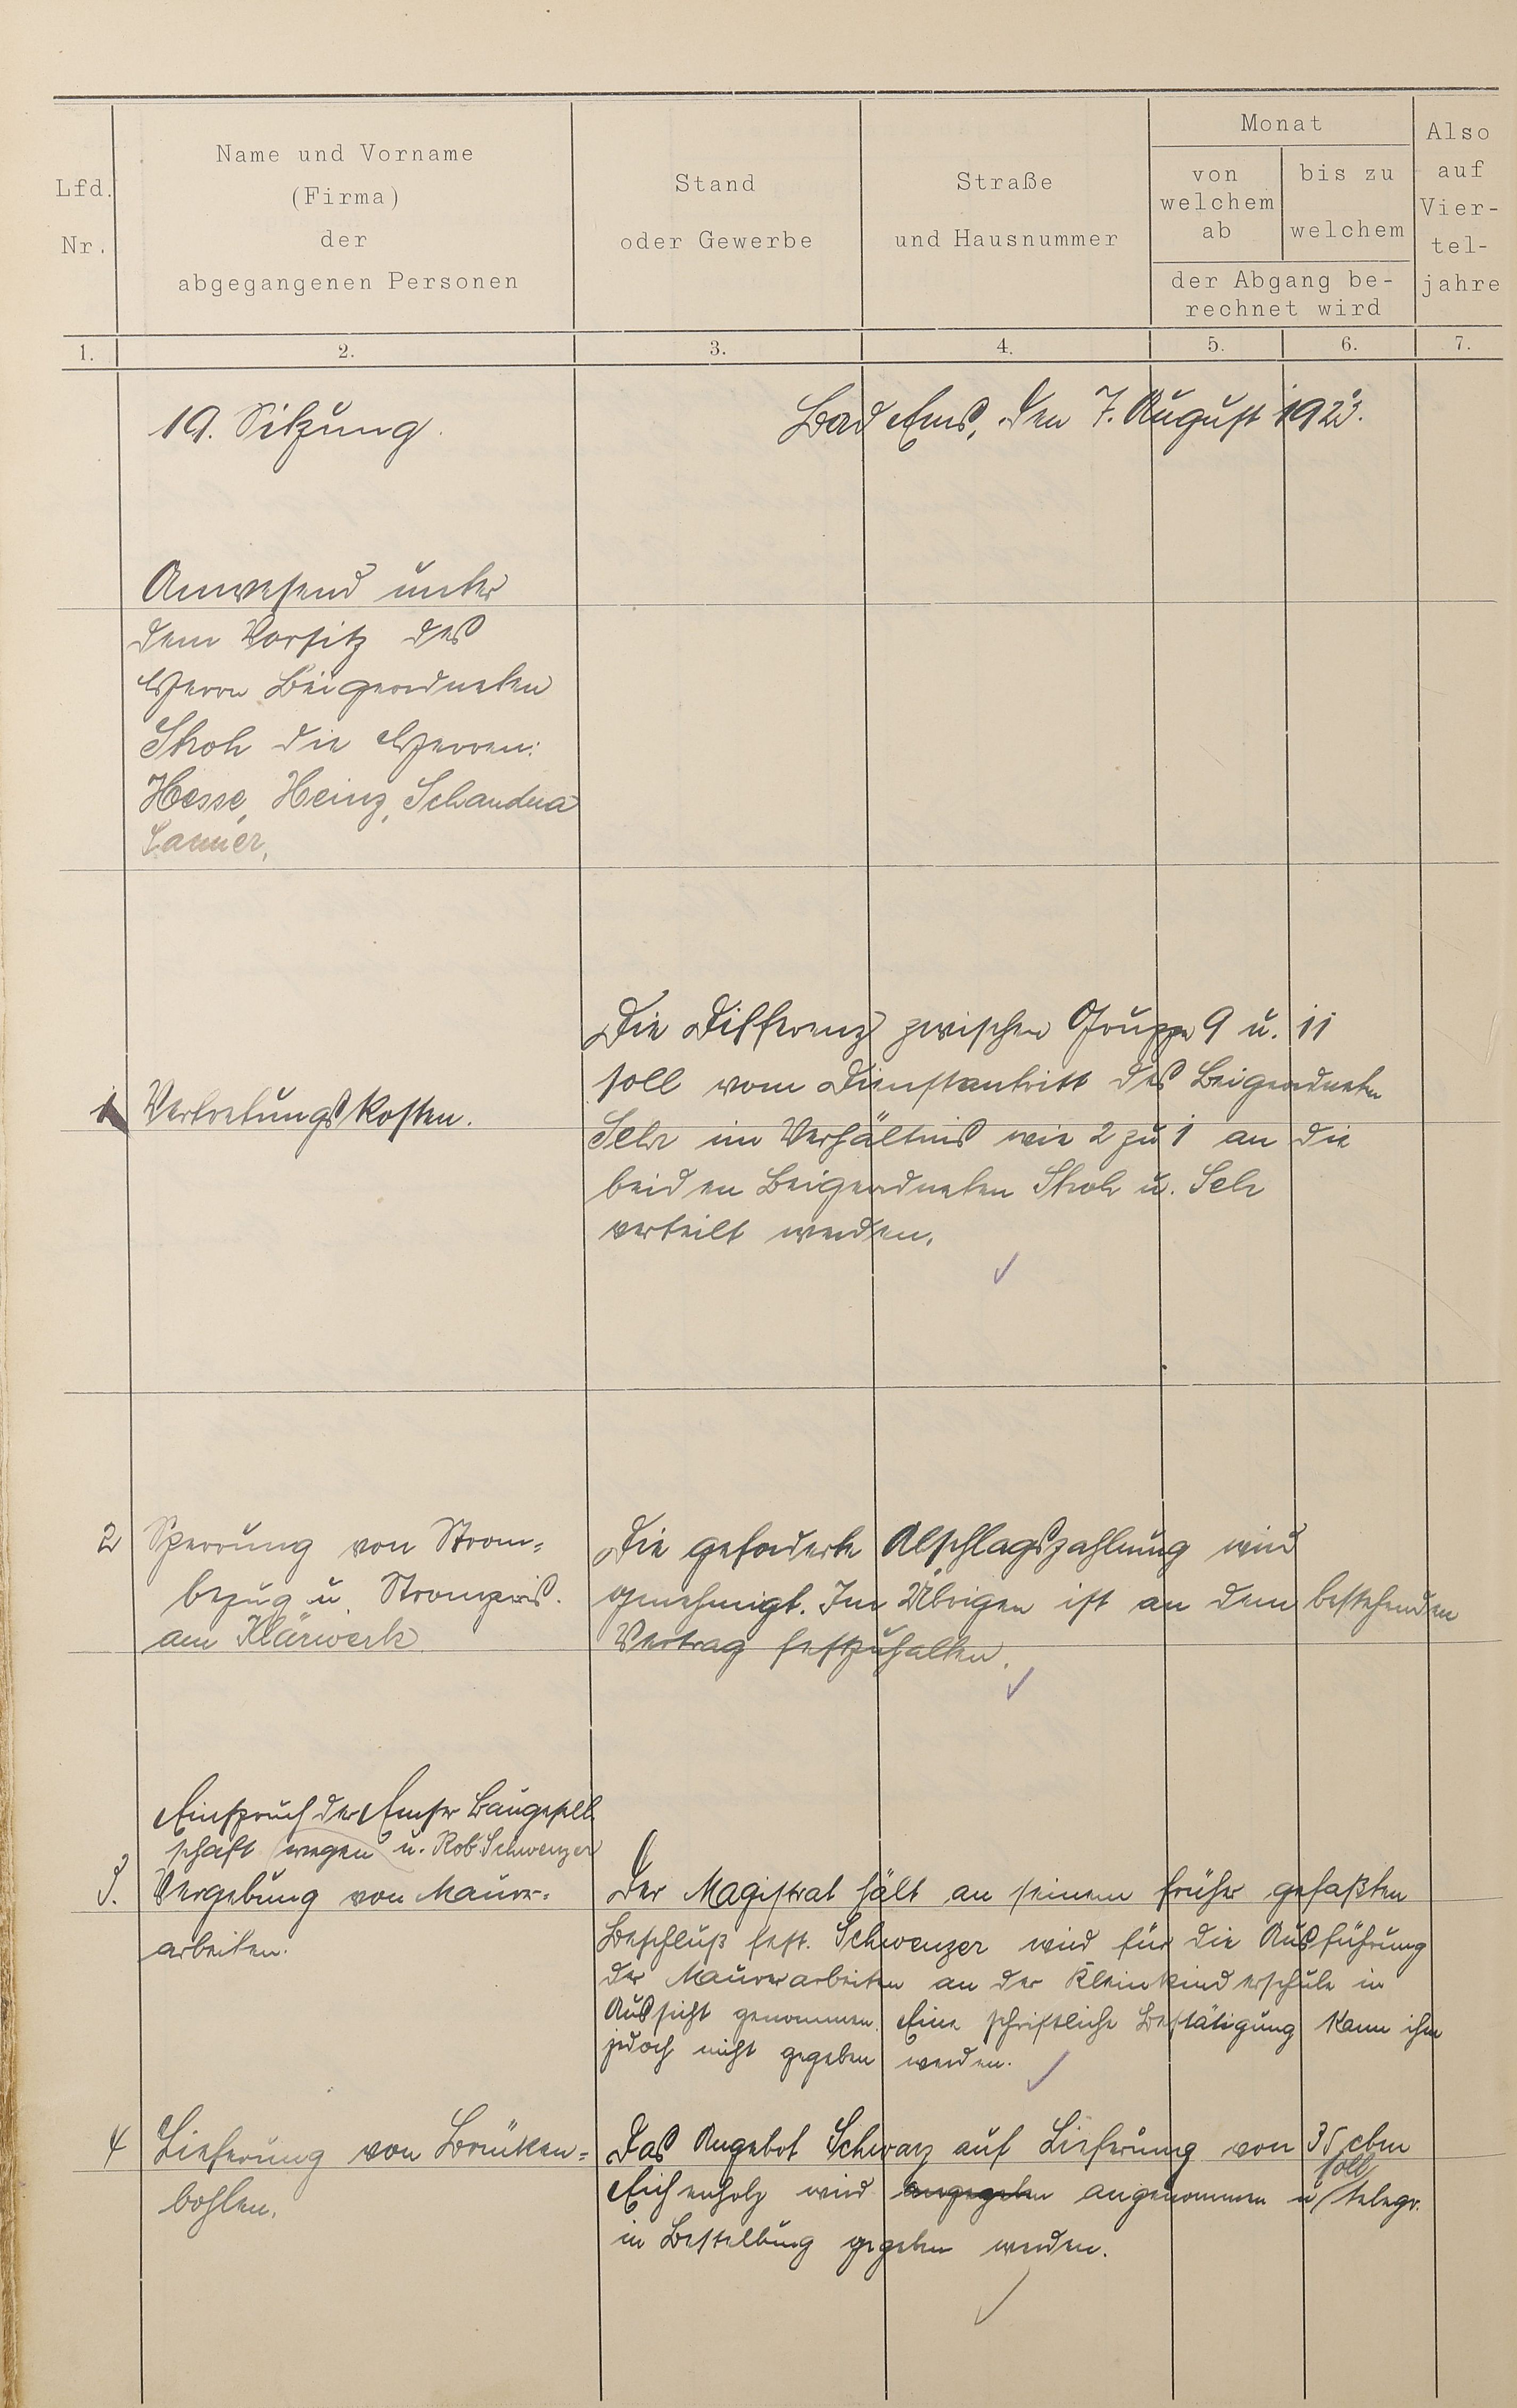 Lfd.
Nr.
Name und Vorname
(Firma)
der
abgegangenen Personen
Stand
oder Gewerbe
Straße
und Hausnummer
Monat
von
welchem
ab
bis zu
welchem
der Abgang be-
rechnet wird
Also
auf
Vier-
tel-
jahre
1. 2. 3. 4. 5. 6. 7.
19. Sitzung.
Bad Ems, den 7. August 1923.
Anwesend unter
dem Vorsitz des
Herrn Beigeordneten
Stroh die Herren:
Hesse, Heinz, Schandua
1 Vertretungskosten.
Die Differenz zwischen Gruppe 9 u. 11
soll vom Dienstantritt des Beigeordneten
Selr im Verhältnis wie 2 zu 1 an die
beiden Beigeordneten Stroh u. Selr
verteilt werden.
2 Sperrung von Strom-
bezug u. Strompreis.
am Klärwerk
Die geforderte Abschlagszahlung wird
genehmigt. Im Übrigen ist an dem bestehenden
Vertrag festzuhalten.
Einspruch der Emser Baugesell
schaft wegen u. Rob. Schwenzer
3. Vergebung von Maurer-
arbeiten.
Der Magistrat hält an seinem früher gefaßten
Beschluß fest. Schwenzer wird für die Ausführung
der Maurerarbeiten an der Kleinkinderschule in
Aussicht genommen. Eine schriftliche Bestätigung kann ihm
jedoch nicht gegeben werden.
4 Lieferung von Brücken-
bohlen.
Das Angebot Schwarz auf Lieferung von 35 cbm
Eichenholz wird angegeben angenommen u. soll telegr.
in Bestellung gegeben werden.